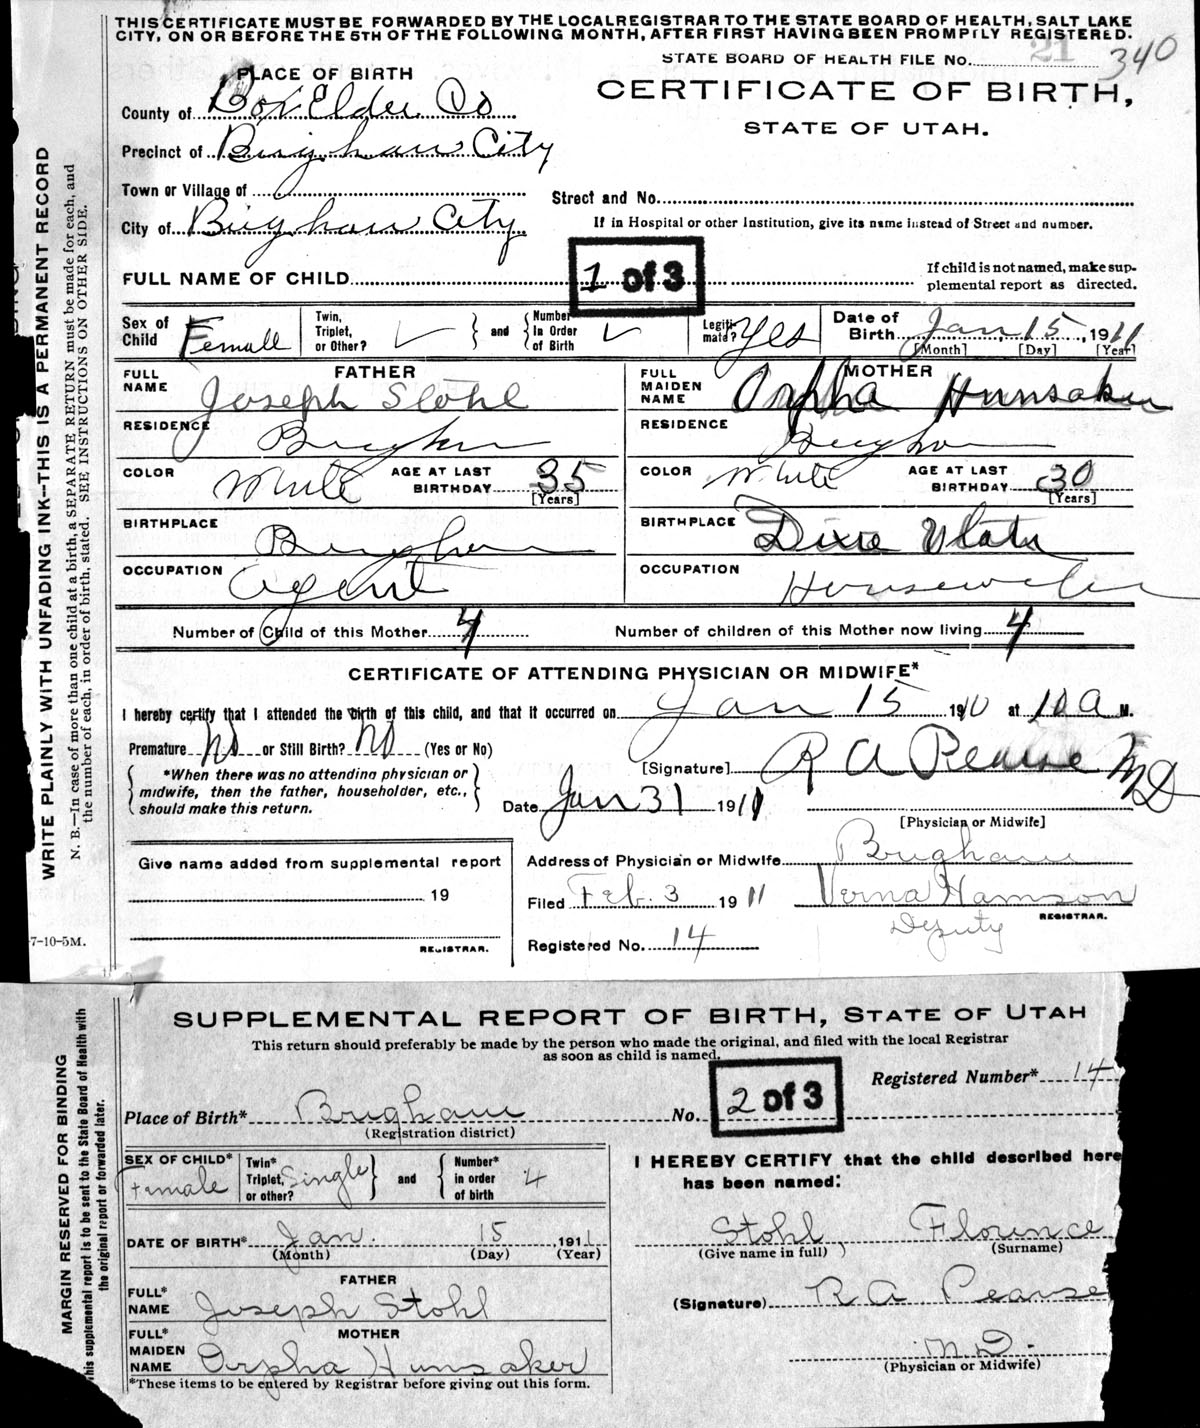 THIS CERTIFICATE MUST BE FORWARDED BY THE LOCAL REGISTRAR TO THE STATE BOARD OF HEALTH, SALT LAKE
CITY, ON OR BEFORE THE 5TH OF THE FOLLOWING MONTH, AFTER FIRST HAVING BEEN PROMPTLY REGISTERED.
STATE BOARD OF HEALTH FILE No. 21 340
PLACE OF BIRTH
CERTIFICATE OF BIRTH,
STATE OF UTAH.
County of Box Elder Co
Precinct of Brigham City
Town or Village of
Street and No.
City of Brigham City
If in Hospital or other Institution, give its name instead of Street and number.
FULL NAME OF CHILD
1 of 3
If child is not named, make sup-
plemental report as directed.
Sex of Child Female
Twin, Triplet, or Other? ✓ and Number in Order of Birth ✓
Legiti-mate? Yes
Date of Birth Jan 15, 1911
[Month] [Day] [Year]
FATHER
FULL NAME Joseph Stohl
RESIDENCE Brigham
COLOR White AGE AT LAST BIRTHDAY 35 [Years]
BIRTHPLACE Brigham
OCCUPATION Agent
MOTHER
FULL MAIDEN NAME Orpha Hunsaker
RESIDENCE Brigham
COLOR White AGE AT LAST BIRTHDAY 30 [Years]
BIRTHPLACE Dixie Utah
OCCUPATION Housewife
Number of Child of this Mother 4 Number of children of this Mother now living 4
CERTIFICATE OF ATTENDING PHYSICIAN OR MIDWIFE*
I hereby certify that I attended the birth of this child, and that it occurred on Jan 15 1910 at 10 a M.
Premature No or Still Birth? No (Yes or No)
*When there was no attending physician or
midwife, then the father, householder, etc.,
should make this return.
[Signature] R A Pearse MD
Date Jan 31 1911
[Physician or Midwife]
Give name added from supplemental report
19
REGISTRAR.
Address of Physician or Midwife Brigham
Filed Feb. 3 1911 Verna Hamson
REGISTRAR.
Deputy
Registered No. 14
7-10-5M.
WRITE PLAINLY WITH UNFADING INK—THIS IS A PERMANENT RECORD
N. B.—In case of more than one child at a birth, a SEPARATE RETURN must be made for each, and
the number of each, in order of birth, stated. SEE INSTRUCTIONS ON OTHER SIDE.
SUPPLEMENTAL REPORT OF BIRTH, STATE OF UTAH
This return should preferably be made by the person who made the original, and filed with the local Registrar
as soon as child is named.
2 of 3
Registered Number* 14
Place of Birth* Brigham No.
(Registration district)
SEX OF CHILD* Female
Twin* Triplet, or other? Single and Number* in order of birth 4
DATE OF BIRTH* Jan. 15, 1911
(Month) (Day) (Year)
FATHER
FULL* NAME Joseph Stohl
MOTHER
FULL* MAIDEN NAME Orpha Hunsaker
*These items to be entered by Registrar before giving out this form.
I HEREBY CERTIFY that the child described here
has been named:
Stohl Florence
(Give name in full) (Surname)
(Signature) R A Pearse
M.D.
(Physician or Midwife)
MARGIN RESERVED FOR BINDING
this supplemental report is to be sent to the State Board of Health with
the original report or forwarded later.